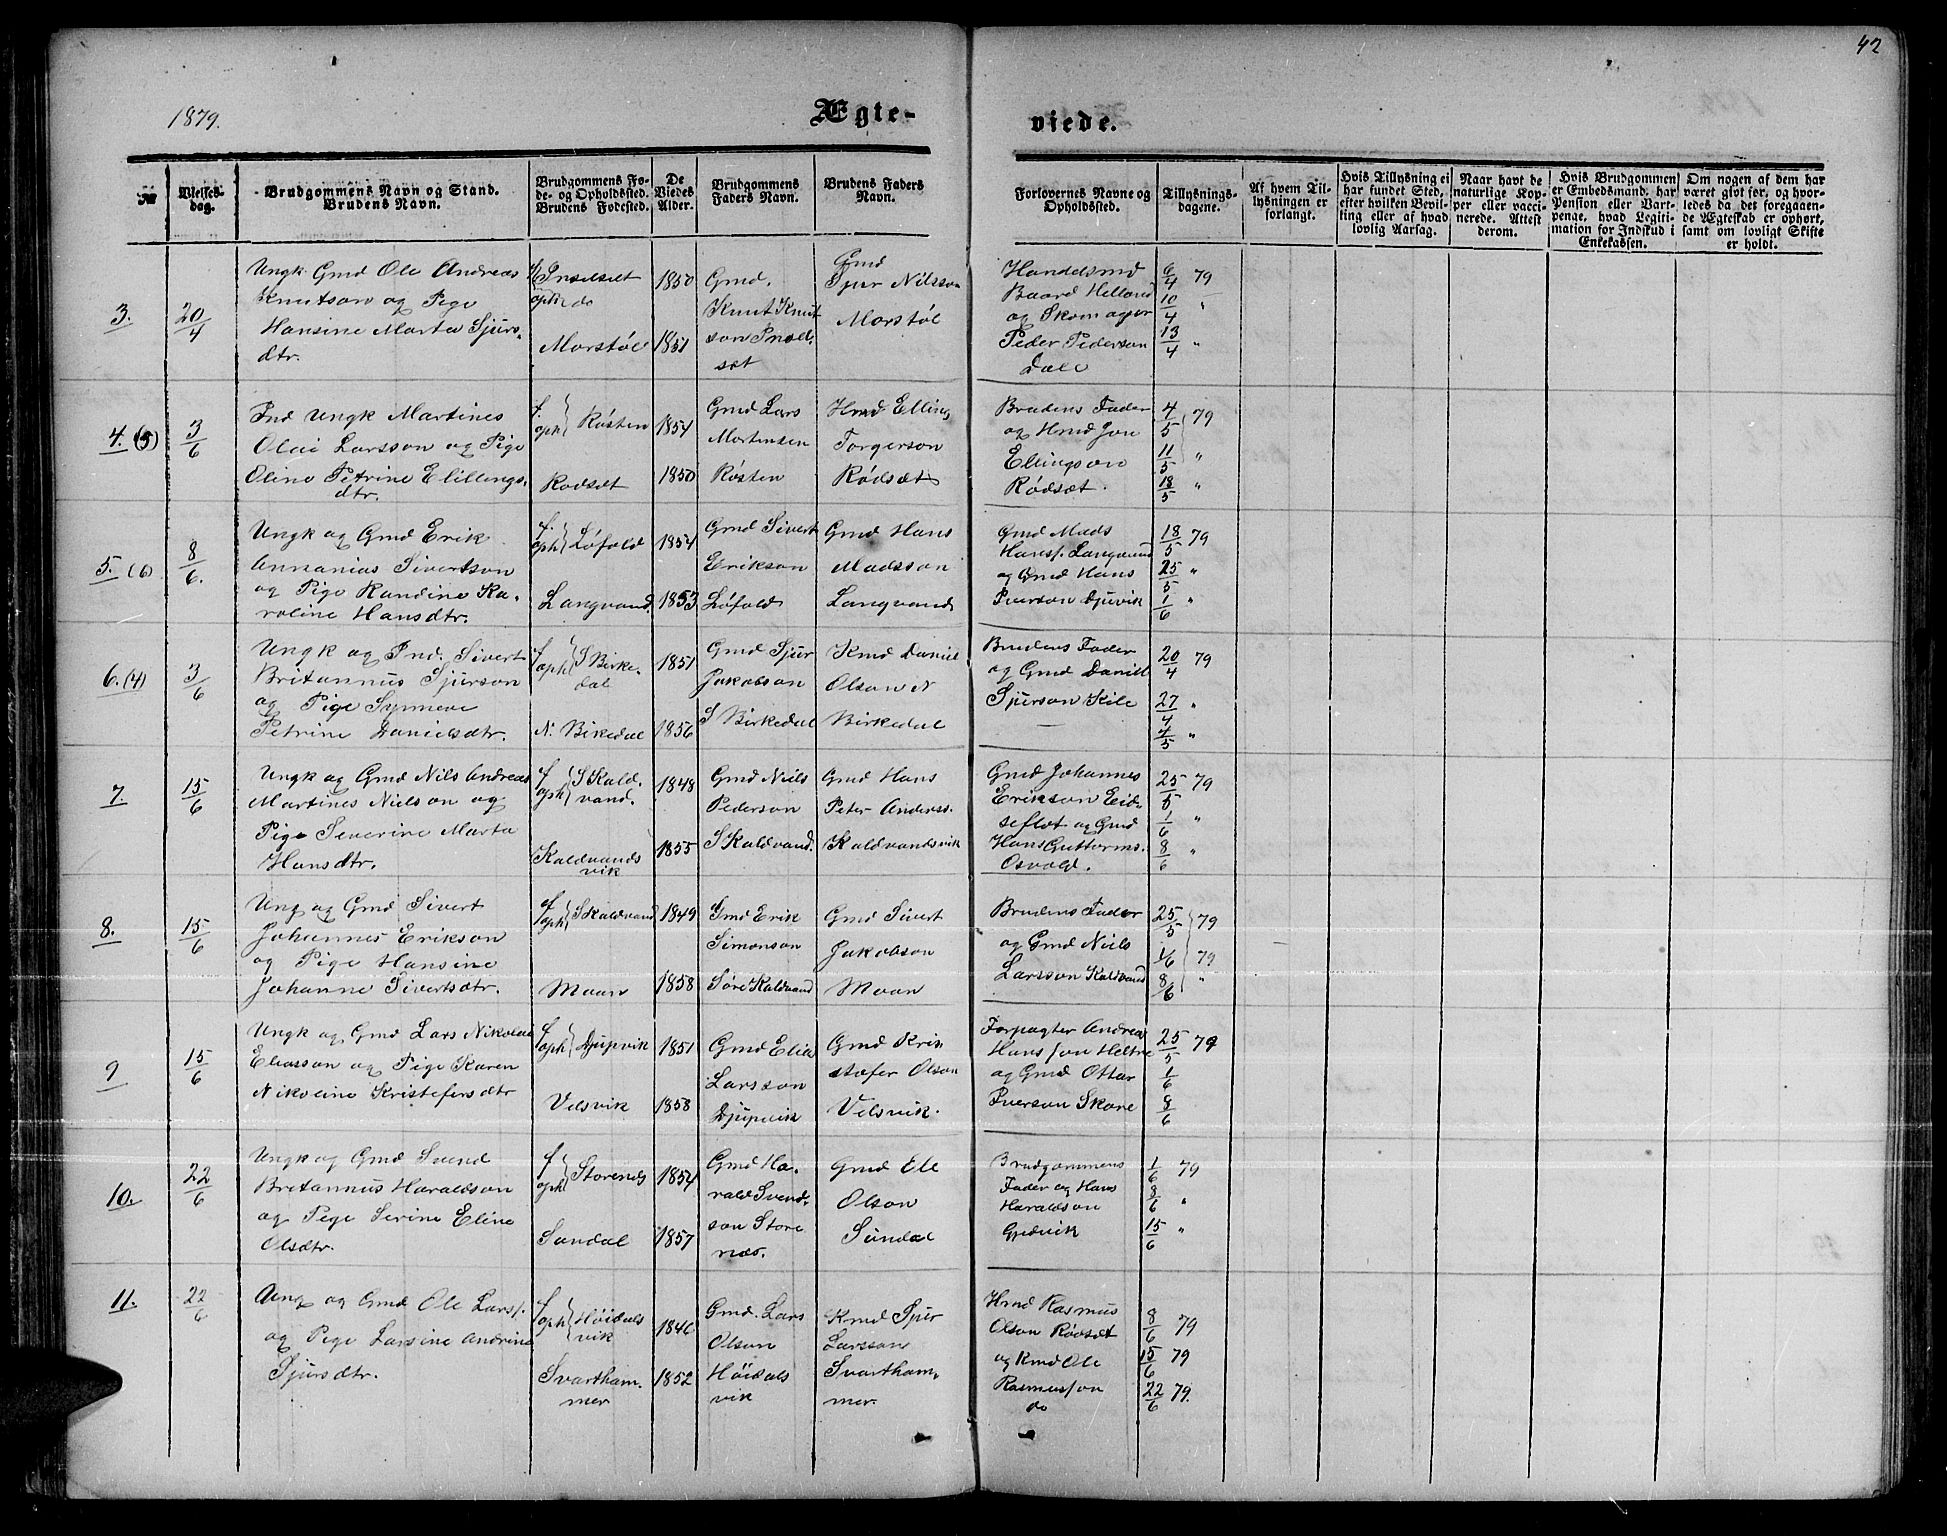 42
1879.
Ægte-
viede.
No
Vielses-
dag.
Brudgommens Navn og Stand.
Brudens Navn.
Brudgommens Fø-
de- og Opholdssted.
Brudens Fødested.
De
Viedes
Alder.
Brudgommens
Faders Navn.
Brudens Faders
Navn.
Forlovernes Navne og
Opholdssted.
Tillysnings-
dagene.
Af hvem Til-
lysningen er
forlangt.
Hvis Tillysning ei
har fundet Sted,
efter hvilken Bevil-
ling eller af hvad
lovlig Aarsag.
Naar havt de
naturlige Kop-
per eller vacci-
nerede. Attest
derom.
Hvis Brudgommen
er Embedsmand, har
Pension eller Vart-
penge, hvad Legiti-
mation for Indskud i
Enkekassen.
Om nogen af dem har
været givt før, og hvor-
ledes da det foregaaen-
de Ægteskab er ophørt,
samt om lovligt Skifte
er holdt.
3.
20/4
Ungk. Gmd Ole Andreas
Knutson og Pige
Hansine Marta Sjurs-
dtr.
oph do
Morstøl
1850
1851
Gmd.
Knut Knut
son
Gmd
Sjur Nilsson
Morstøl
Handelsmd
Baard Helland
og Skomager
Peder Pederson
Dale
6/4 79
10/4 "
13/4 "
4. (5)
3/6
Ind Ungk Martines
Olai Larsson og Pige
Oline Petrine Elillings-
dtr.
f.
oph Røsten
Rødset
1854
1850
Gmd Lars
Mortensen
Røsten
Hmd Elling
Torgerson
Rødsæt
Brudens Fader
og Hmd Jon
Ellingson
Rødsæt.
4/5 79
11/5 "
18/5 "
5. (6)
8/6.
Ungk og Gmd Erik
Annanias Sivertson
og Pige Randine Ka-
roline Hansdtr.
f.
oph Løfold
Langvand.
1854
1853
Gmd Sivert
Erikson
Løfold
Gmd Hans
Madsson
Langvand
Gmd Mads
Hans. Langvand
og Gmd Hans
Iverson Djuvik
18/5 79
25/5 "
1/6 "
6. (4)
3/6
Ungk og Ind. Sivert
Britannus Sjurson
og Pige Synneve
Petrine Danielsdtr.
f
oph S Birke-
dal
N. Birkedal
1851
1856
Gmd Sjur
Jakobson
S Birkedal
Kmd Daniel
Olson N
Birkedal
Brudens Fader
og Gmd Daniel
Sjurson Kile
20/4 79
27/4 "
4/5 "
7.
15/6
Ungk og Gmd Nils Andreas
Martines Nielson og
Pige Severine Marta
Hansdtr.
f
oph S Kald-
vand.
Kaldvands
vik
1848
1855
Gmd Niels
Pederson
S Kaldvand.
Gmd Hans
Peter Anderss.
Kaldvandsvik
Gmd Johannes
Erikson Eid-
seflot og Gmd
Hans Guttorms.
Osvold.
25/5 79
1/6 "
8/6 "
8.
15/6
Ung og Gmd Sivert
Johannes Erikson
og Pige Hansine
Johanne Sivertsdtr.
f
oph S Kaldvand
Moan
1849
1858
Gmd Erik
Simonson
Søre Kaldvand
Gmd Sivert
Jakobson
Moan
Brudens Fader
og Gmd Niels
Larsson Kaldvand
25/5 79
1/6 79
8/6 "
9
15/6
Ungk og Gmd Lars Nikolai
Eliasson og Pige Karen
Nikoline Kristefersdtr
f
oph Djupvik
Velsvik
1851
1858
Gmd Elias
Larsson
Djupvik
Gmd Kri
stofer Olson
Velsvik.
Forpagter Andreas
Hansson Heltne
og Gmd Ottar
Iverson Skare
25/5 79
1/6
8/6
10.
22/6
Ungk og Gmd Svend
Britannus Haraldson
og Pige Serine Eline
Olsdtr.
f
oph Storenes
Sundal
1854
1857
Gmd Ha-
rald Svend-
son Store
næs.
Gmd Ole
Olson
Sundal
Brudgommens
Fader og Hans
Haraldson
Gjedvik
1/6 79
8/6 "
15/6 "
11.
22/6
Ung og Gmd Ole Larss.
og Pige Larsine Andrine
Sjursdtr.
f
oph Høidals
vik
Svartham-
mer
1846
1852
Gmd. Lars
Olson
Høidals
vik
Kmd Sjur
Larsson
Svartham-
mer.
Hmd Rasmus
Olson Rødsæt
og Kmd Ole
Rasmusson
do
8/6 79
15/6 79
22/6 79.